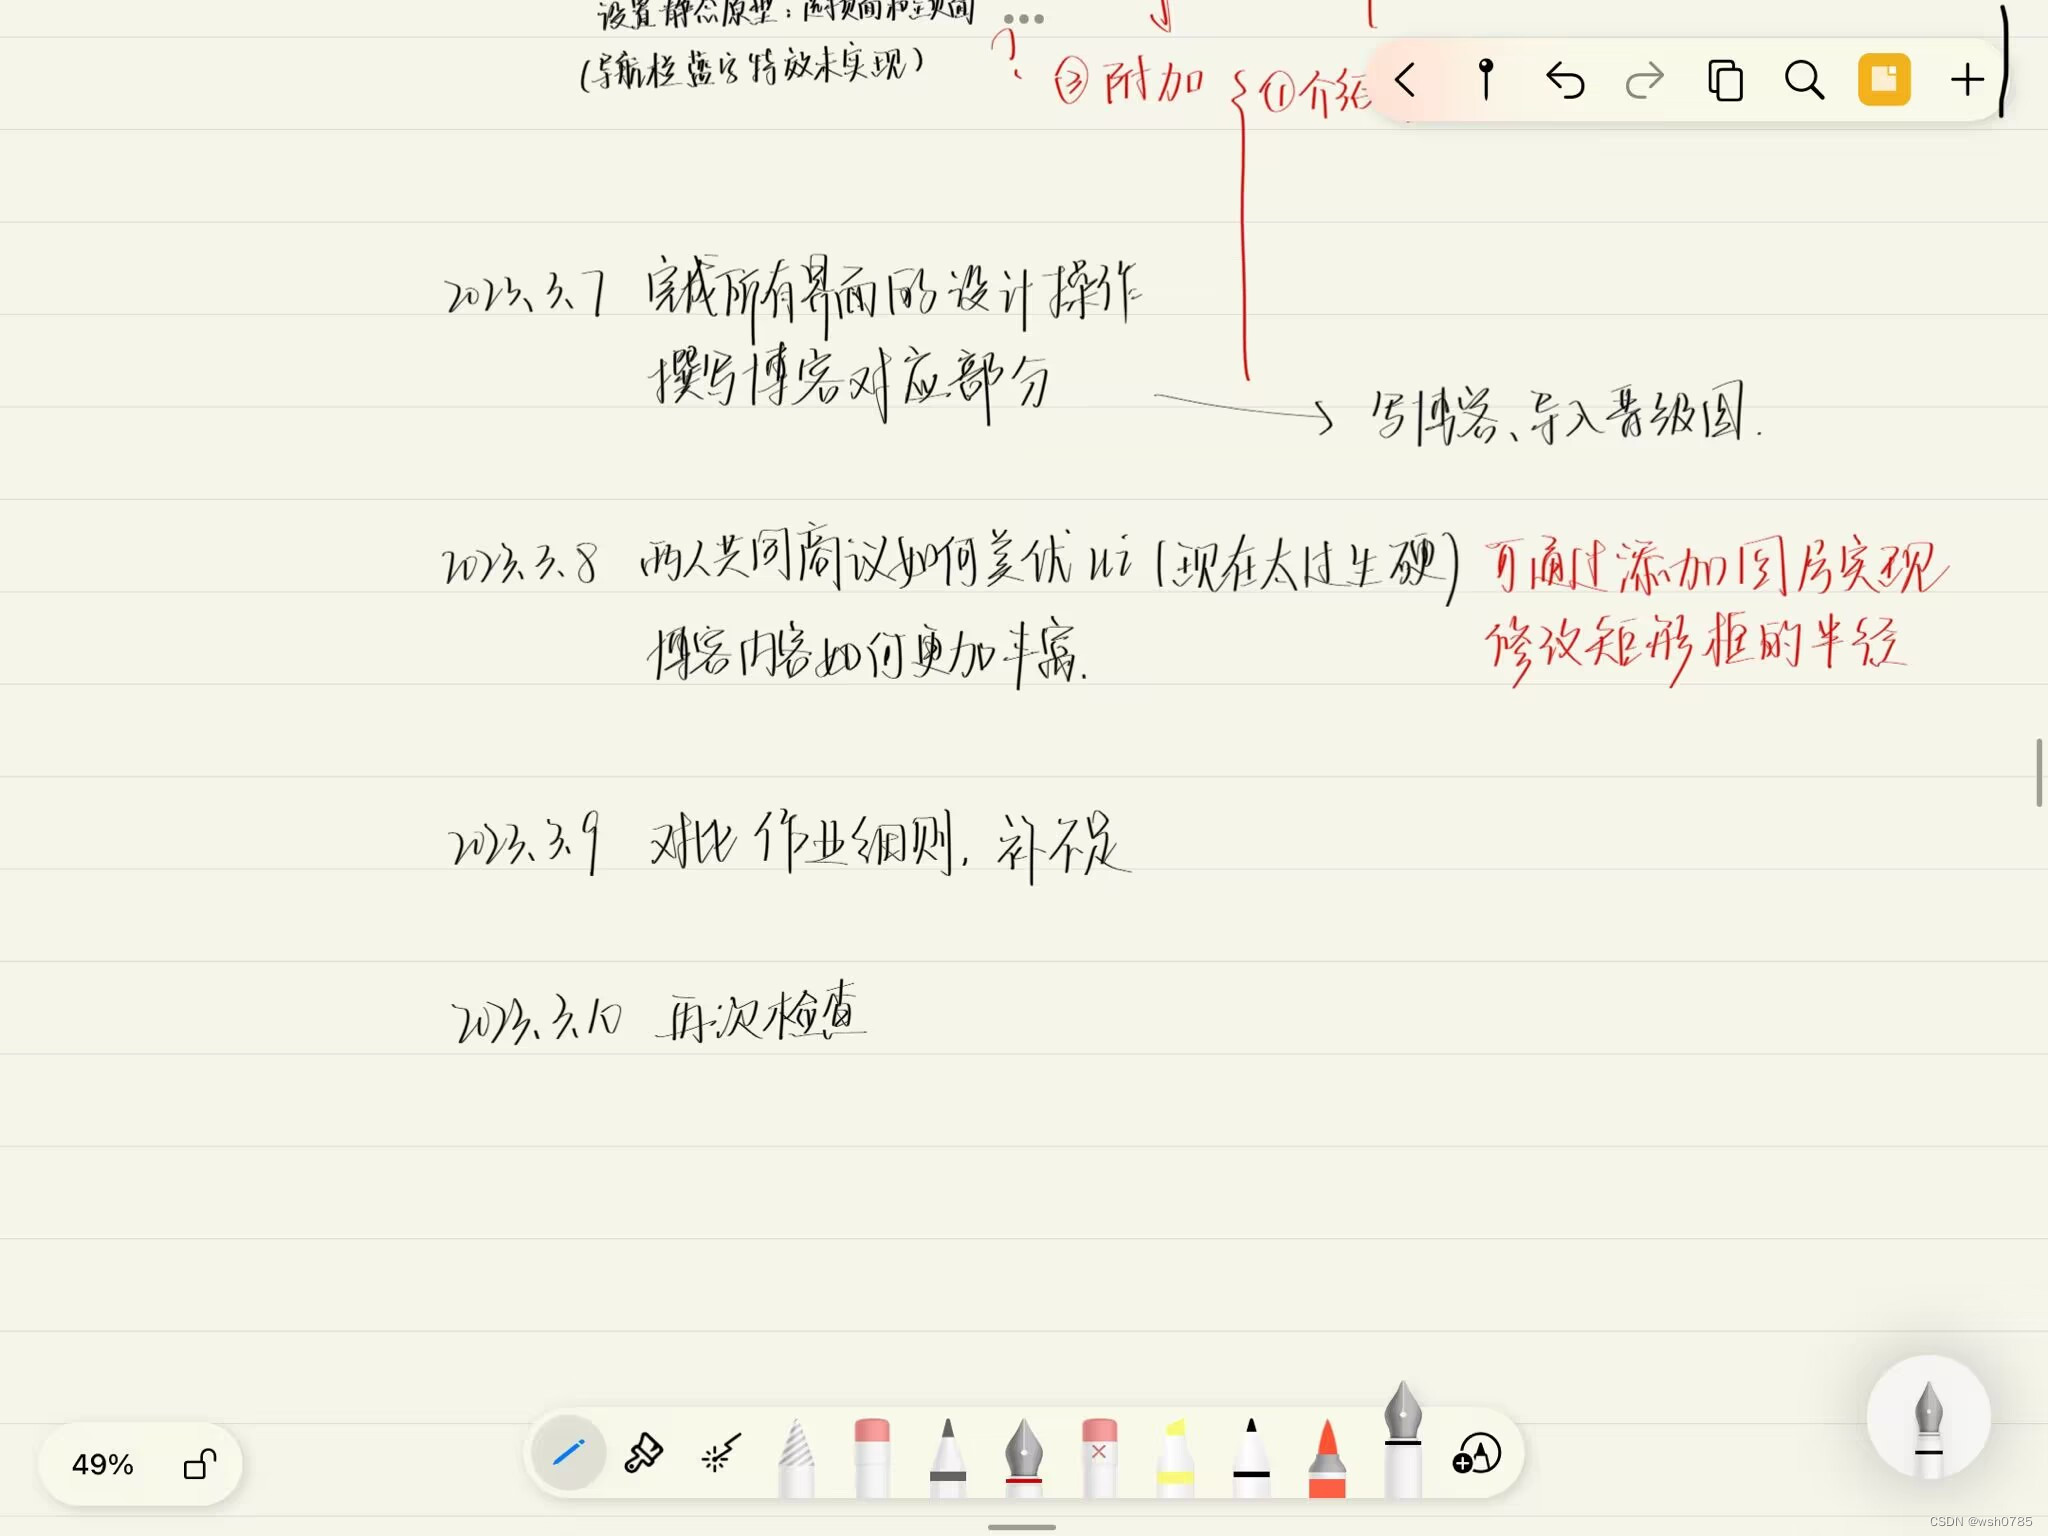 设置静态原型：附页面和主页面
(导航栏蓝字特效未实现)
?
③附加
①介绍
2023.3.7 完成所有界面的设计操作
撰写博客对应部分
写博客、导入晋级图.
2023.3.8 两人共同商议如何美优ui(现在太过生硬)
可通过添加图层实现
博客内容如何更加丰富.
修改矩形框的半径
2023.3.9 对比作业细则,补不足
2023.3.10 再次检查
49%
CSDN @wsh0785